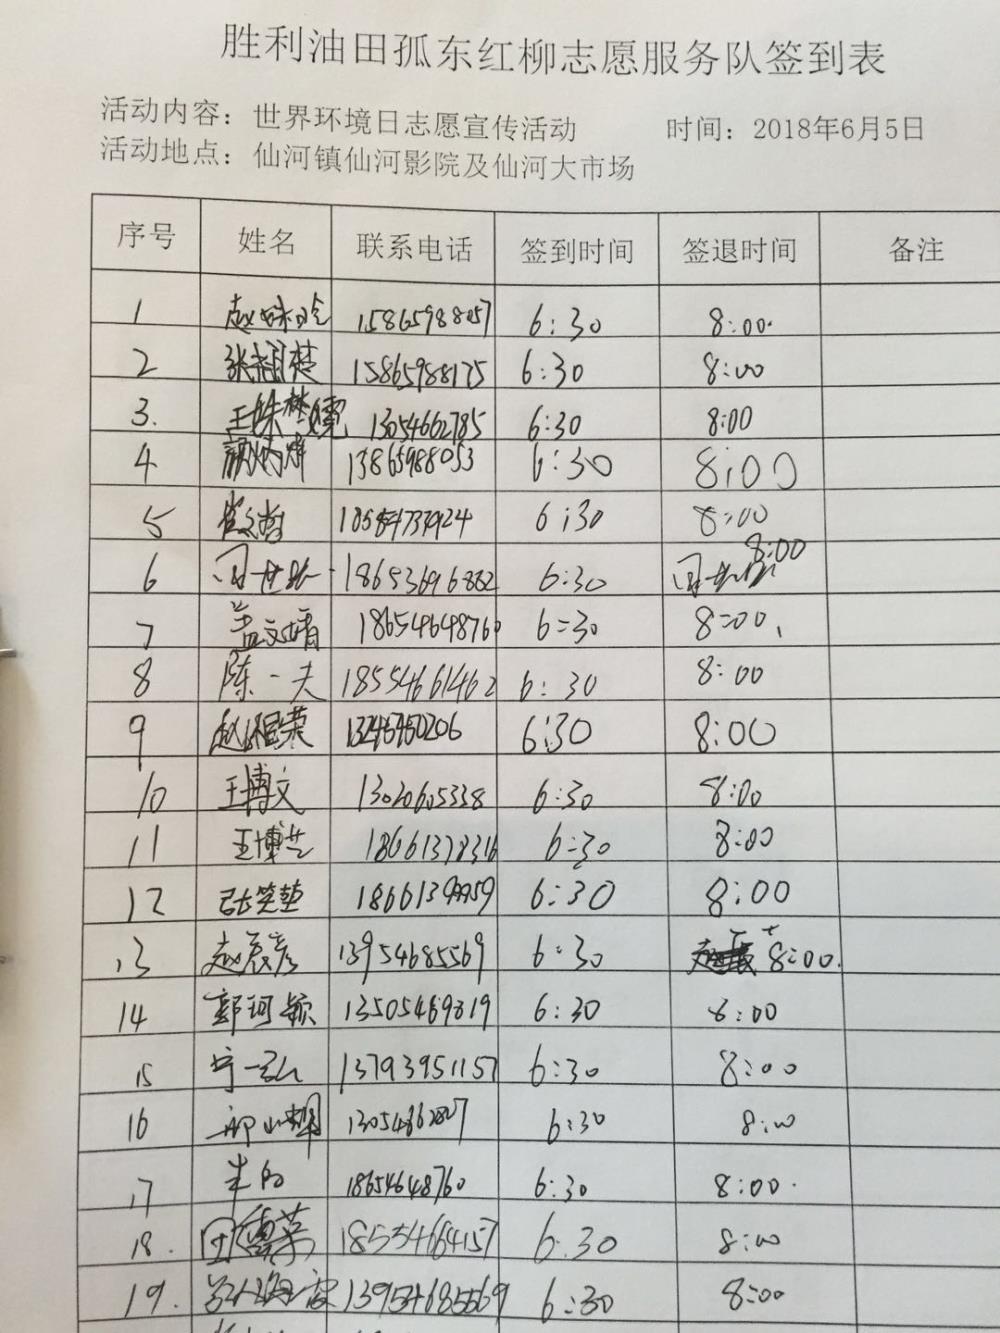 胜利油田孤东红柳志愿服务队签到表
活动内容：世界环境日志愿宣传活动 时间：2018年6月5日
活动地点：仙河镇仙河影院及仙河大市场
序号 姓名 联系电话 签到时间 签退时间 备注
1 15865988057 6:30 8:00.
2 15865988175 6:30 8:00
3. 13054662785 6:30 8:00
4 13865988053 6:30 8:00
5 6:30 8:00
6 18653696882 6:30 8:00
7 盖文婧 18654648760 6=30 8=00
8 陈一夫 18554661462 6:30 8:00
9 6:30 8:00
10 王博文 6:30 8:00
11 王博艺 18661378316 6:30 8:00
12 张笑楚 6:30 8:00
13 赵晨彦 13954685569 6:30 8:00.
14 郭珂颖 13505469819 6:30 8:00
15 宁一弘 13793951157 6:30 8:00
16 6:30 8:00
17 18654648760 6:30 8:00.
18. 18554664157 6:30 8:00
19. 13954685569 6:30 8:00